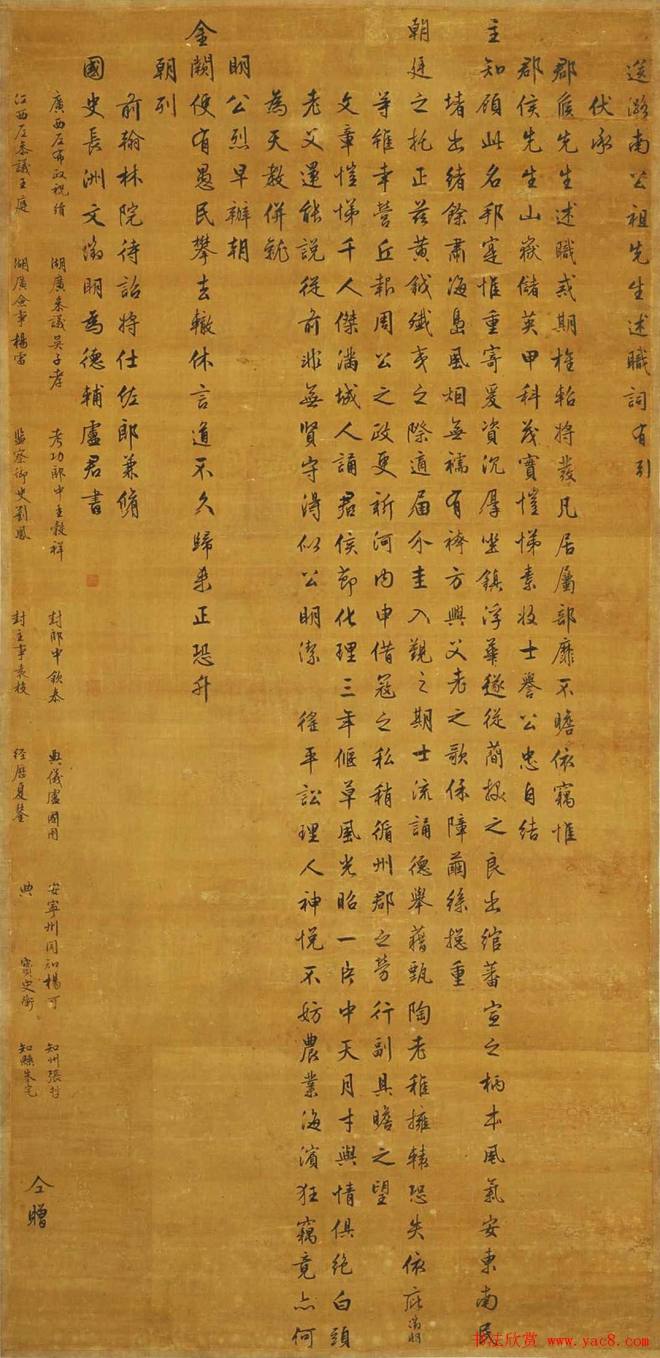 送潞南公祖先生述職詞有引
伏承
郡侯先生述職戒期権軺將發凡居屬部靡不瞻依竊惟
郡侯先生山嶽儲英甲科茂實愷悌素收士譽公忠自結
主知顧此名邦寔惟重寄爰資沉厚坐鎮浮華遂從簡拔之良出綰蕃宣之柄本風氣安東南民
堵出緒餘肅海島風烟無襦有袴方興父老之歌保障繭絲摠重
朝廷之托正茲黃鉞殲夷之際適届介圭入覲之期士流誦德舉藉甄陶老稚擁轅恐失依庇徵明
等雖幸營丘報周公之政更祈河內申借寇之私稍循州郡之勞行副具瞻之望
文章愷悌千人傑滿城人誦君侯節化理三年偃草風光昭一片中天月才與情俱絕白頭
老父還能說從前非無賢守得似公明潔 徭平訟理人神悅不妨農業海濱狂竊竟亦何
為天教併
明公烈早辦朝
金闕便有愚民攀去轍休言道不久歸来正恐升
朝列
前翰林院待詔將仕佐郎兼脩
國史長洲文徵明為德輔盧君書
廣西左布政祝續 湖廣参議吳子孝 考功郎中王穀祥 封郎中 典儀盧國用 安寧州同知楊可 知州張
江西左参議王庭 湖廣僉事楊雷 監察御史劉鳳 封主事袁校 经歷夏鍪 典寶史衡 知縣朱
仝贈
书法欣赏 www.yac8.com